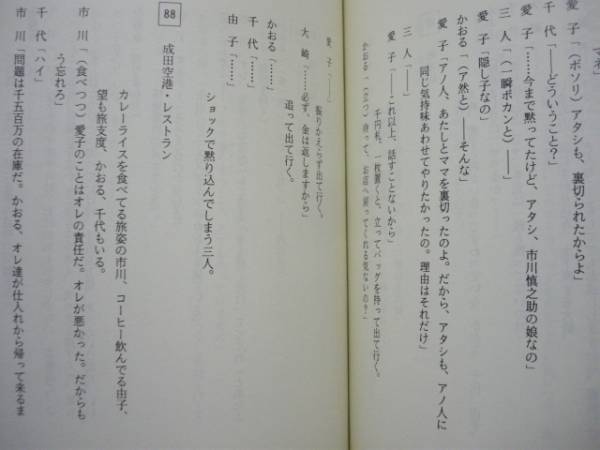 マネ」
愛　子「（ボソリ）アタシも、裏切られたからよ」
千　代「――どういうこと？」
愛　子「……今まで黙ってたけど、アタシ、市川慎之助の娘なの」
三　人「（一瞬ポカンと）――」
愛　子「隠し子なの」
かおる「（ア然と）――そんな」
愛　子「アノ人、あたしとママを裏切ったのよ。だから、アタシも、アノ人に
同じ気持味あわせてやりたかったの。理由はそれだけ」
三　人「――」
愛　子「――これ以上、話すことないから」
千円札、一枚置くと、立ってバッグを持って出て行く。
お店へ戻ってくれる気ないの？」
愛　子「――」
振りかえらず出て行く。
大　崎「……必ず、金は返しますから」
追って出て行く。
かおる「……」
千　代「……」
由　子「……」
ショックで黙り込んでしまう三人。
88　成田空港・レストラン
カレーライスを食べてる旅姿の市川、コーヒー飲んでる由子、
望も旅支度、かおる、千代もいる。
市　川「（食べつつ）愛子のことはオレの責任だ。オレが悪かった。だからも
う忘れろ」
千　代「ハイ」
市　川「問題は千五百万の在庫だ。かおる、オレ達が仕入れから帰って来るま